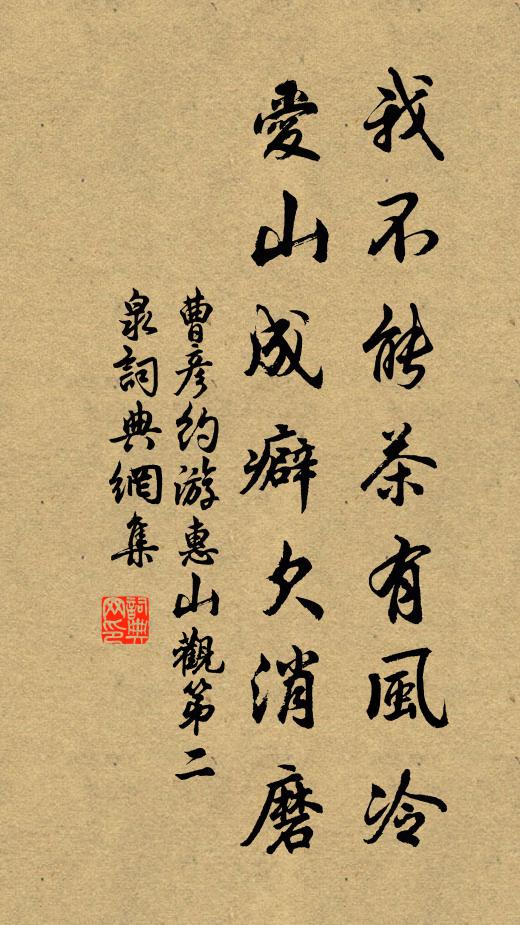 我不能茶有風冷
愛山成癖欠消磨
曹彥約游惠山觀第二
泉詞典網集
詞典
网印